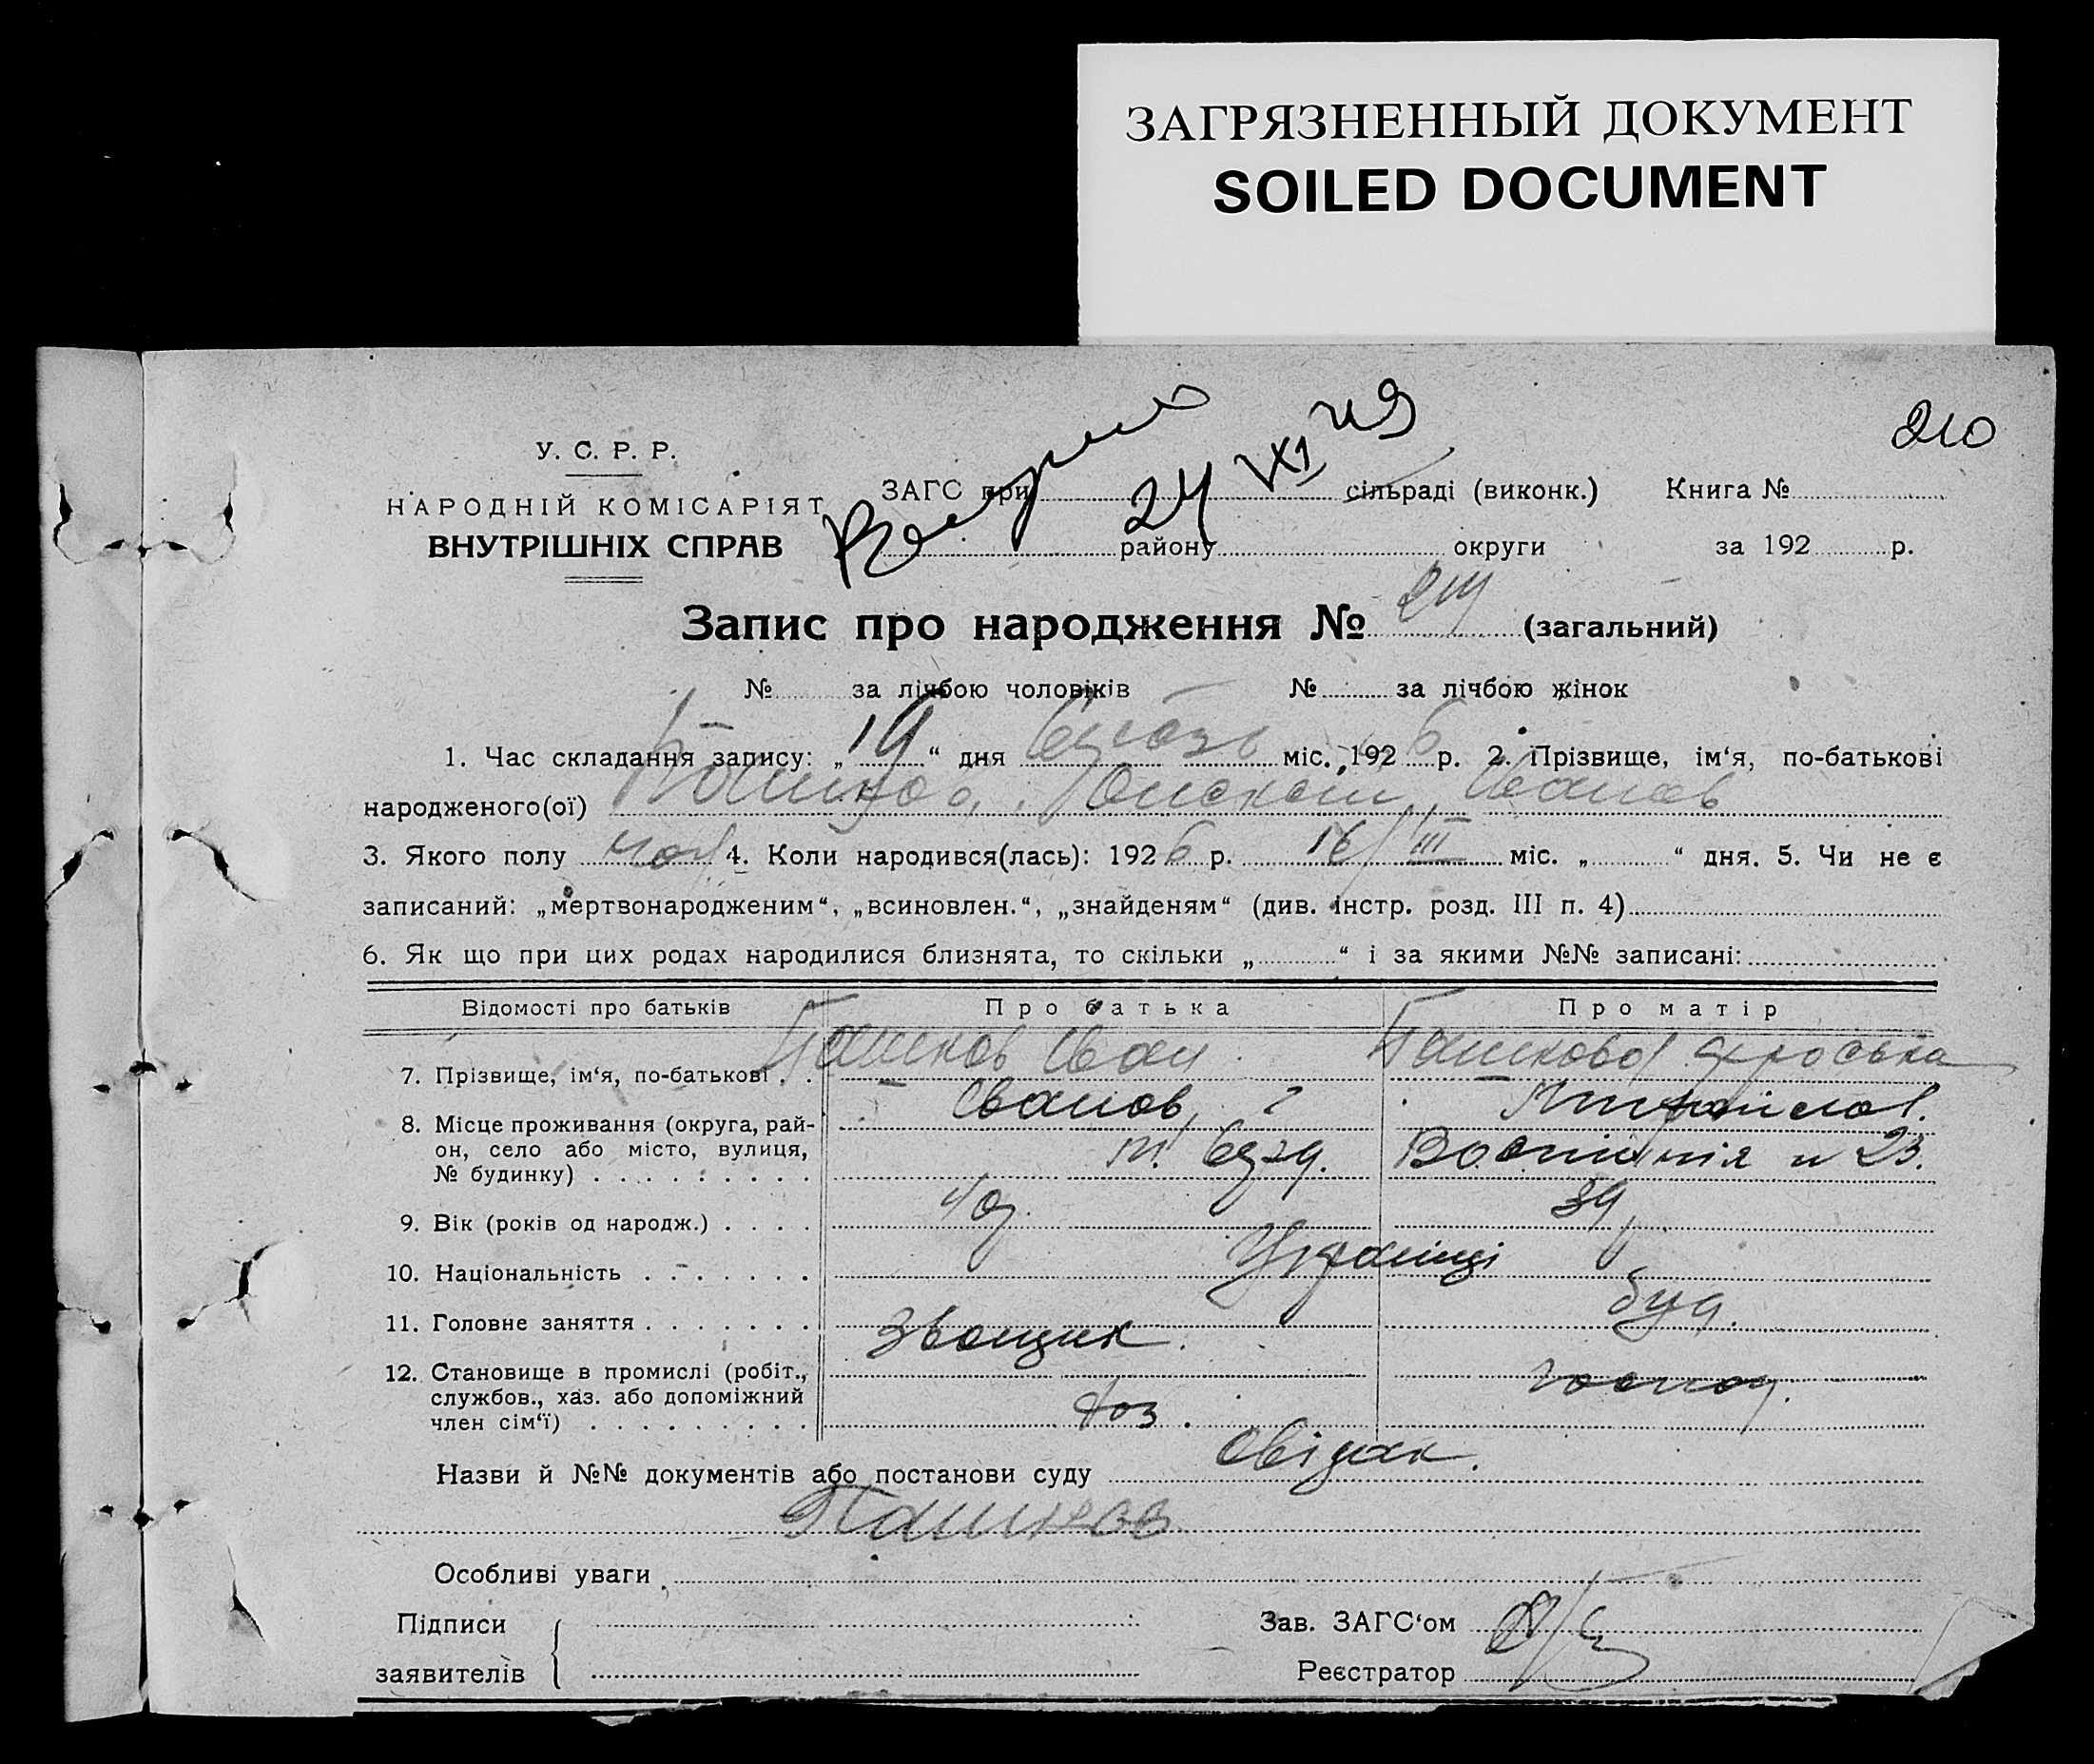 ЗАГРЯЗНЕННЫЙ ДОКУМЕНТ
SOILED DOCUMENT
210
У. С. Р. Р.
НАРОДНІЙ КОМІСАРІЯТ
ВНУТРІШНІХ СПРАВ
ЗАГС при сільраді (виконк.) Книга №
24 району округи за 192 р.
Запис про народження № (загальний)
№ за лічбою чоловіків № за лічбою жінок
1. Час складання запису: „19“ дня міс. 1926 р. 2. Прізвище, ім‘я, по-батькові
народженого(ої) Иванов
3. Якого полу чол 4. Коли народився(лась): 1926 р. 16/III міс. „ “ дня. 5. Чи не є
записаний: „мертвонародженим“, „всиновлен.“, „знайденям“ (див. інстр. розд. III п. 4)
6. Як що при цих родах народилися близнята, то скільки „ “ і за якими №№ записані:
Відомості про батьків Про батька Про матір
7. Прізвище, ім‘я, по-батькові Пашков Иван Пашкова
Иванов
8. Місце проживання (округа, рай-
он, село або місто, вулиця,
№ будинку) 23.
9. Вік (років од народж.) 39
10. Національність Українці
11. Головне заняття Звощик. буд.
12. Становище в промислі (робіт.,
службов., хаз. або допоміжний
член сім‘ї) хоз. господ.
Назви й №№ документів або постанови суду свідок.
Пашков
Особливі уваги
Підписи
заявителів
Зав. ЗАГС‘ом
Реєстратор